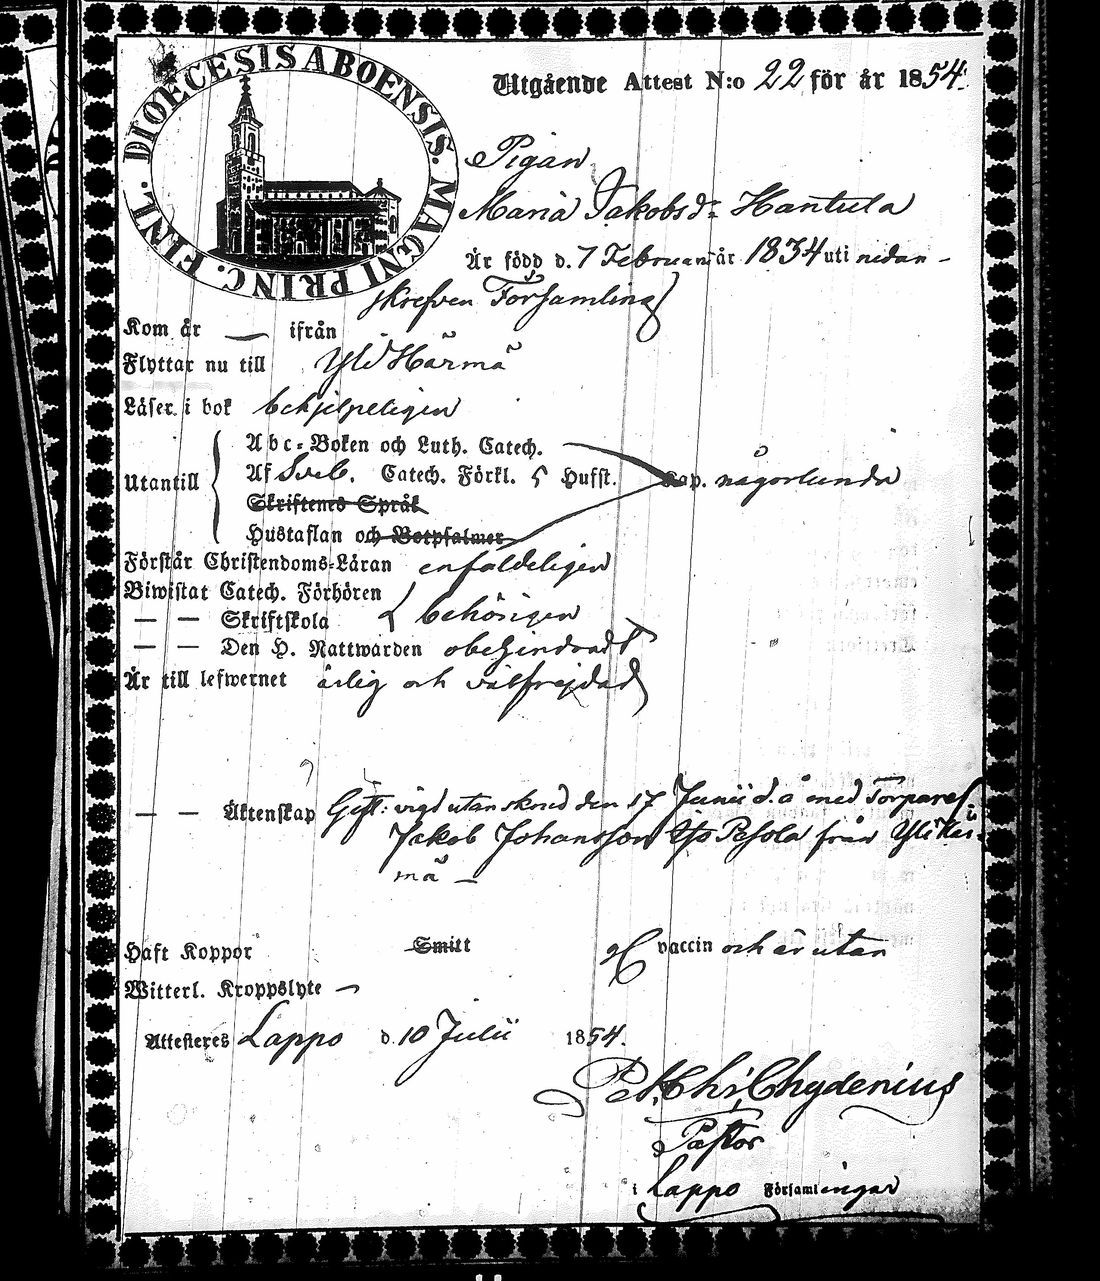 DIOECESIS ABOENSIS. MAGNI PRINC. FINL.
Utgående Attest N:o 22 för år 1854.
Pigan
Maria Jakobsd: Hantula
Är född d. 7 Februari år 1834 uti nedan-
skrefven Församling
Kom år — ifrån
Flyttar nu till Yli Härmä
Läser i bok behjelpeligen
Abc-Boken och Luth. Catech.
Utantill Af Sveb. Catech. Förkl. 5 Hufst. Cap. någorlunda
Skriftenes Språk
Hustaflan och Botpsalmer
Förstår Christendoms-Läran enfaldeligen
Biwistat Catech. Förhören
— — Skriftskola behörigen
— — Den H. Nattwarden obehindradt
Är till lefwernet ärlig och välfrejdad
— — Äktenskap Gift: vigd utanskred den 17 Junii d. å med Torparen
Jakob Johansson Pesola från Yli Här-
mä —
Haft Koppor Smitt vaccin och är utan
Witterl. Kroppslyte —
Attesteres Lappo d. 10 Julii 1854.
Pet. Chr. Chydenius
Pastor
i Lappo Församlingar